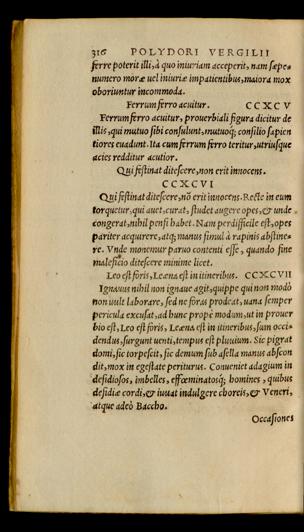 316 POLYDORI VERGILII
ferre poterit illi, à quo iniuriam acceperit, nam sæpe
numero moræ uel iniuriæ impatientibus, maiora mox
oboriuntur incommoda.
Ferrum ferro acuitur. CCXCV
Ferrum ferro acuitur, prouerbiali figura dicitur de
illis, qui mutuo sibi consulunt, mutuoq; consilio sapien
tiores euadunt. Ita cum ferrum ferro teritur, utriusque
acies redditur acutior.
Qui festinat ditescere, non erit innocens.
CCXCVI
Qui festinat ditescere, nō erit innocens. Recte in eum
torquetur, qui auet, curat, studet augere opes, & unde
congerat, nihil pensi habet. Nam perdifficile est, opes
pariter acquirere, atq; manus simul à rapinis abstine
re. Vnde monemur paruo contenti esse, quando sine
maleficio ditescere minime licet.
Leo est foris, Leæna est in itineribus. CCXCVII
Ignauus nihil non ignaue agit, quippe qui non modò
non uult laborare, sed ne foras prodeat, uana semper
pericula excusat, ad hunc propè modum, ut in prouer
bio est, Leo est foris, Leæna est in itineribus, sum occi
dendus, surgunt uenti, tempus est pluuium. Sic pigrat
domi, sic torpescit, sic demum sub asella manus abscon
dit, mox in egestate periturus. Conueniet adagium in
desidiosos, imbelles, effœminatosq; homines, quibus
desidiæ cordi, & iuuat indulgere choreis, & Veneri,
atque adeò Baccho.
Occasiones